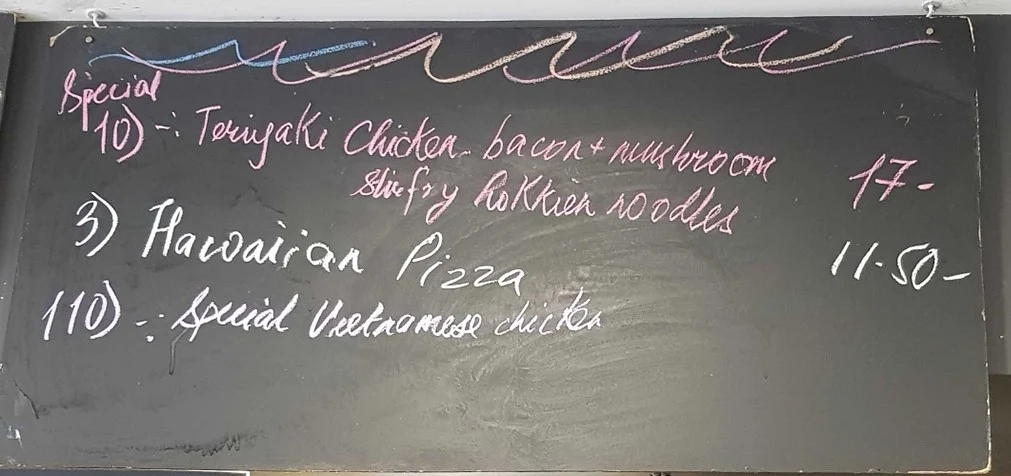 Special
10) -: Teriyaki Chicken bacon + mushroom 17-
Stirfry hoKKien noodles
3) Hawaiian Pizza 11-50-
110) -: Special Vietnamese chicken